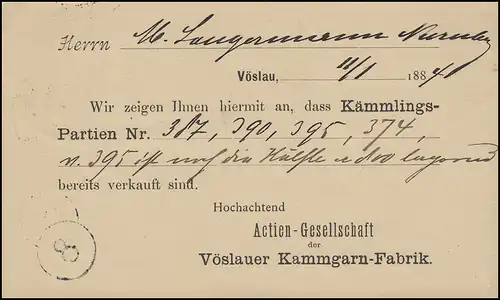 Herrn M. Langermann Nürnberg
Vöslau, 11/1 1884
Wir zeigen Ihnen hiermit an, dass Kämmlings-
Partien Nr. 387, 390, 395, 374,
v. 395 ist noch die Hälfte
bereits verkauft sind.
Hochachtend
Actien-Gesellschaft
der
Vöslauer Kammgarn-Fabrik.
8